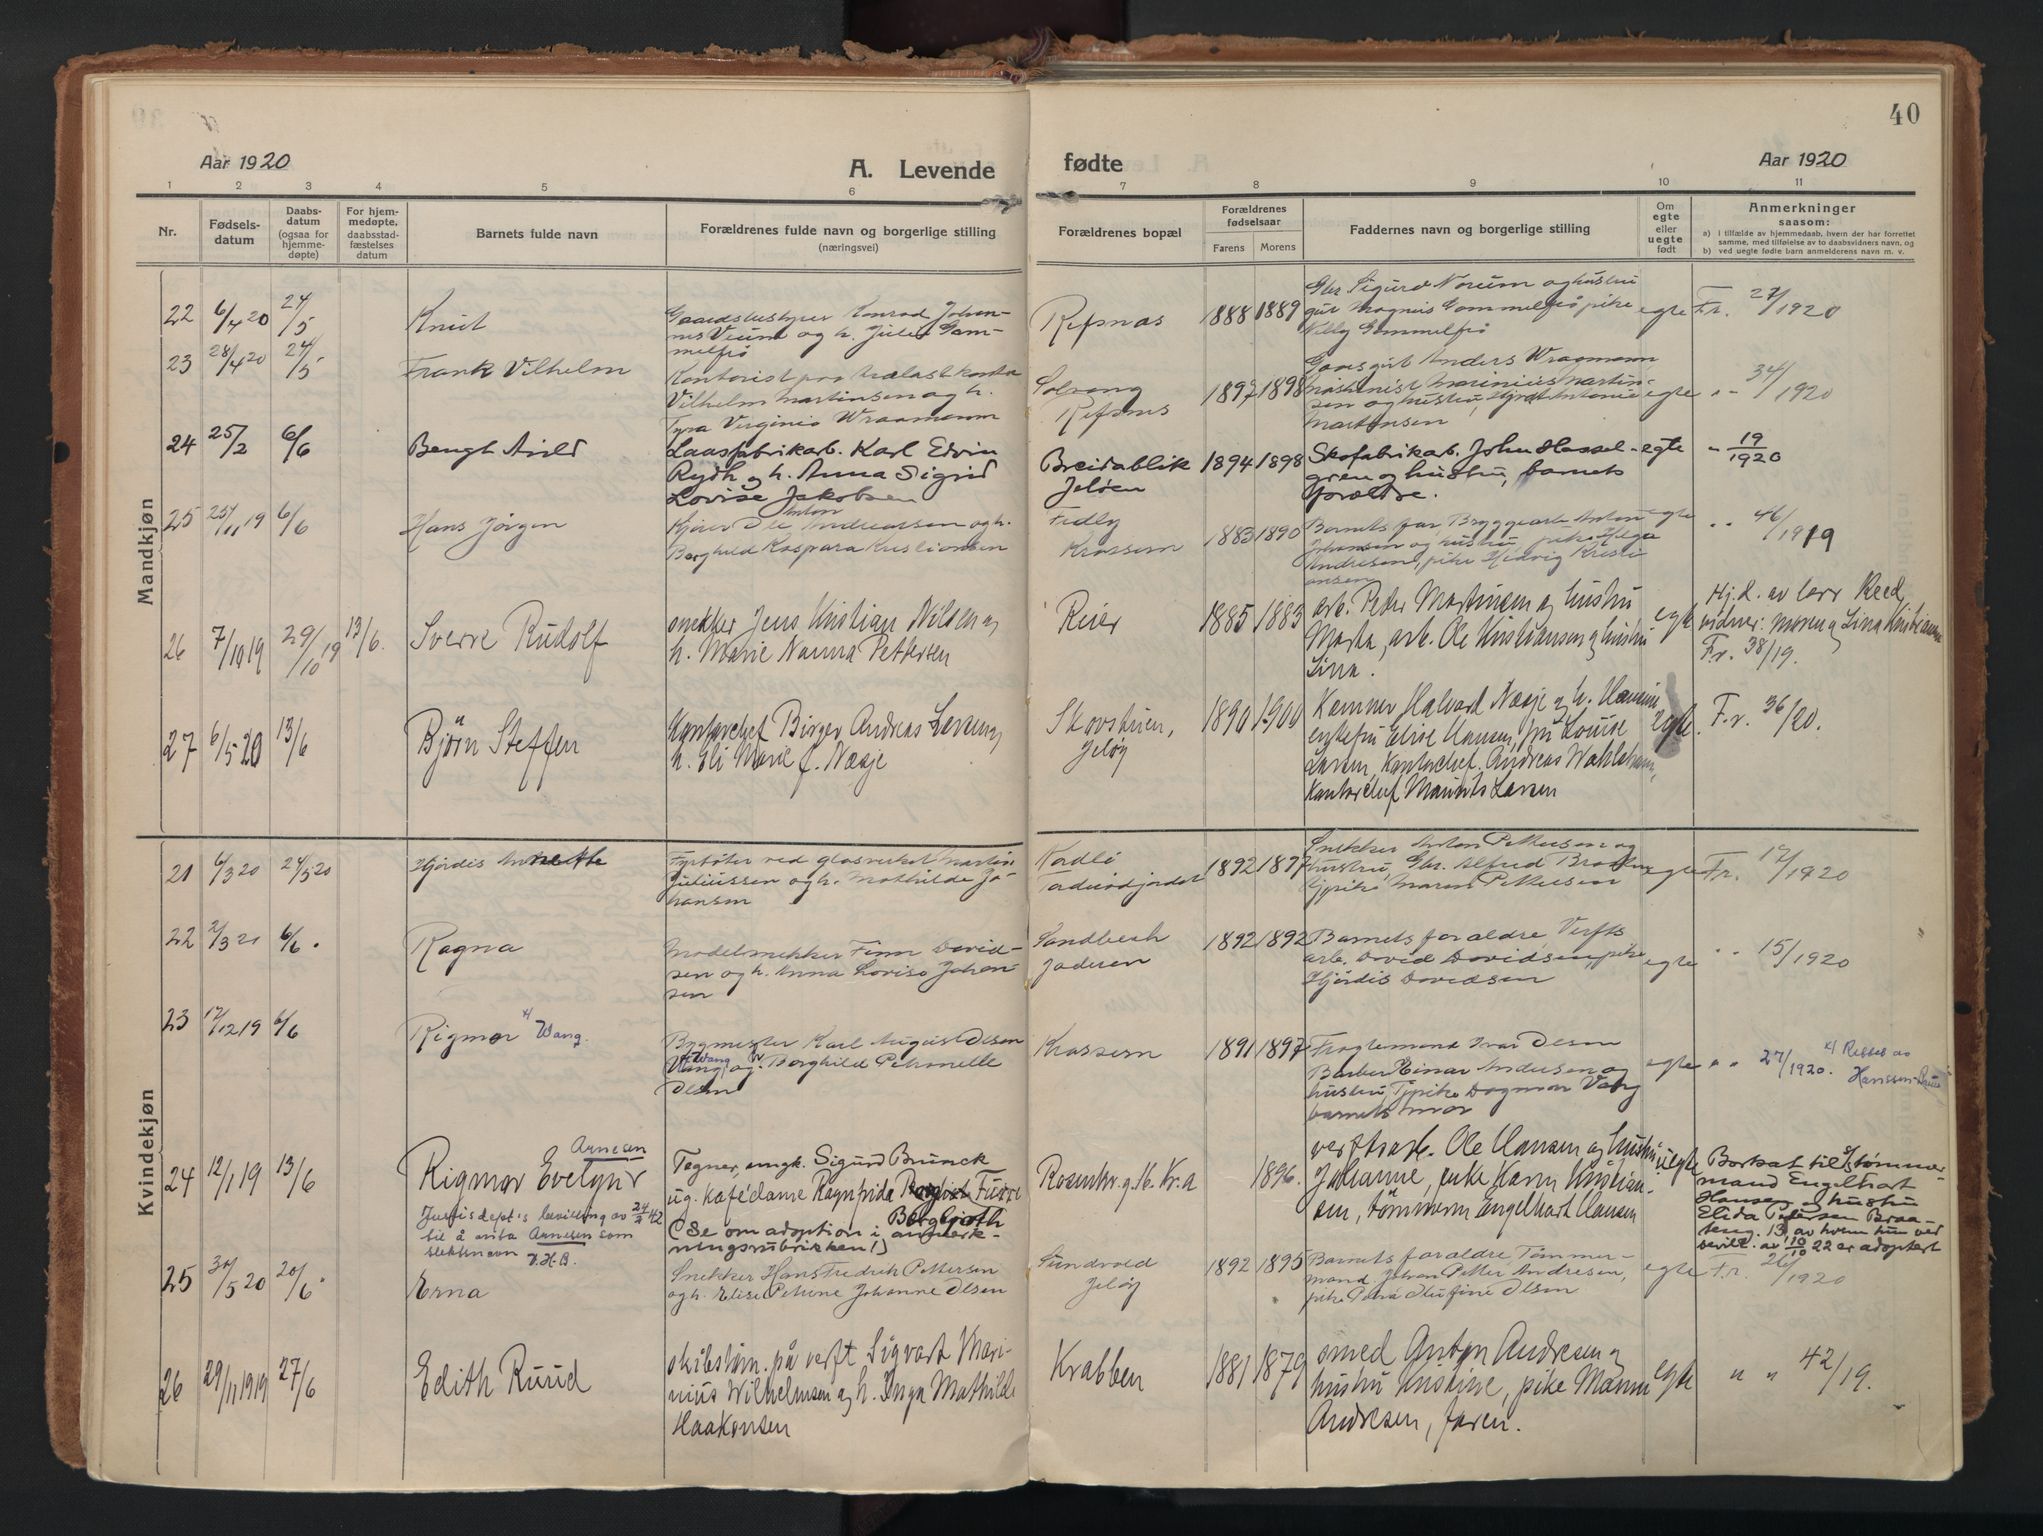 40
Aar 1920
A. Levende
fødte
Aar 1920
1 2 3 4 5 6 7 8 9 10 11
Nr.
Fødsels-
datum
Daabs-
datum
(ogsaa for
hjemme-
døpte)
For hjem-
medøpte,
daabsstad-
fæstelses
datum
Barnets fulde navn
Forældrenes fulde navn og borgerlige stilling
(næringsvei)
Forældrenes bopæl
Forældrenes
fødselsaar
Farens Morens
Faddernes navn og borgerlige stilling
Om
egte
eller
uegte
født
Anmerkninger
saasom:
a) i tilfælde av hjemmedaab, hvem der har forrettet
samme, med tilføielse av to daabsvidners navn, og
b) ved uegte fødte barn anmelderens navn m. v.
Mandkjøn
22 6/4 20 24/5 Knut
Gaardsbestyrer Konrad Johan-
nes Veum og h. Julie Gam-
melsrø
Refsnæs 1888 1889
Gbr Sigurd Norum og hustru
gut Magnus Gammelsrø pike
Nelly Gammelsrø
egte Fr. 27/1920
23 28/4 20 24/5 Frank Vilhelm
Kontorist paa trælastkontor
Vilhelm Martinsen og h.
Tyra Virginia Wragmann
Solvang
Refsnes 1897 1898
Gaardsgut Anders Wragmann
maskinist Marinius Martin-
sen og hustru,
Martinsen
egte " 34/1920
24 25/2 6/6 Bengt Arild
Laasfabrikarb. Karl Edvin
Rydh og h. Anna Sigrid
Lovise Jakobsen
Breidablik
Jeløen 1894 1898
Skofabrikarb. John Hassel-
gren og hustru, barnets
forældre.
egte " 19/1920
25 25/11 19 6/6 Hans Jörgen
Kjører Ole Anton Andreassen og h.
Borghild Kaspara Kristiansen
Fedly
Krossern 1883 1890
Barnets far, Bryggearb. Anton
Johansen og hustru, pike Helga
Andresen, pike Hedvig Kristi
ansen
egte " 46/1919
26 7/10 19 29/10 19 13/6. Sverre Rudolf
snekker Jens Kristian Nilsen og
h. Marie Nanna Pettersen
Reier 1885 1883
arb. Peter Martinsen og hustru
Marta, arb. Ole Kristiansen og hustru
Lina.
egte
Hj.d. av lærer Reed,
vidner: moren og Lina Kristiansen
Fr. 38/19.
27 6/5 20 13/6 Björn Steffen
Kontorchef Birger Andreas Larsen og
h. Eli Marie f. Næsje
Skovstuen,
Jeløy 1890 1900
Kæmner Halvard Næsje og h. Hansine
enkefru Elise Hansen, fru Louise
Larsen, Kontorchef. Andreas Wahlstrøm,
Kontorchef Maurits Larsen
egte. Fr. 36/20.
Kvindekjøn
21 6/3 20 24/5 20 Hjördis Annette
Fyrbøter ved glasverket Martin
Juliussen og h. Mathilde Jo-
hansen
Kodlö
1892 1897
Snekker Anton Pettersen og
hustru, Gbr. Alfred Braaten
Tjpike Maren Pettersen
egte Fr. 17/1920
22 2/3 20 6/6. Ragna
Modelsnekker Finn David-
sen og h. Anna Lovise Johan-
sen
Sandbekk
1892 1892
Barnets forældre, Verfts
arb. David Davidsen, pike
Hjördis Davidsen
egte " 15/1920
23 17/12 19 6/6 Rigmor x/ Wang.
Bygmester Karl August Olsen
Wang og Borghild Petronelle
Olsen
Krossern 1891 1897
Fragtemand Ivar Olsen
Barber Einar Andersen og
hustru, Tjpike Dagmar Vang
barnets mor
egte " " 27/1920. x/ Rettet av
24 12/1 19 13/6 Rigmor Evelyn Arnesen
Justisdept's bevilling av 24/2 42
til å anta Arnesen som
slektsnavn
H.B.
Tegner, ungk. Sigurd Brunck
ug. kafédame Ragnfrida Borgljoth Furre
(Se om adoption i anmerk-
ningsrubrikken!)
Rosenkr. g. 16. Kr.a 1896.
verftsarb. Ole Hansen og hustru
Julianne, enke Karen Kristian-
sen, tømmerm. Engelhart Hansen
uegte
Bortsat til tømmer
mand Engelhart
Hansen og hustru
Elida Petersen Braa-
ten, 13, av hvem hun ved
bevilg. av 10/10 22 er adoptert
25 30/5 20 20/6. Erna
Snekker Hans Fredrik Pettersen
og h. Elise Petrine Johanne Olsen
Sundvold
Jeløy 1892 1895
Barnets forældre, Tømmer-
mand Johan Petter Andresen,
pike Olufine Olsen
egte Fr. 26/1920
26 29/11 1919 27/6 Edith Ruud
skibstøm. på verft Sigvart Mari-
nius Wilhelmsen og h. Inga Mathilde
Haakonsen
Krabben 1881 1879
smed Anton Andresen og
hustru Kristine, pike Mary
Andresen, faren.
egte " " 42/19.